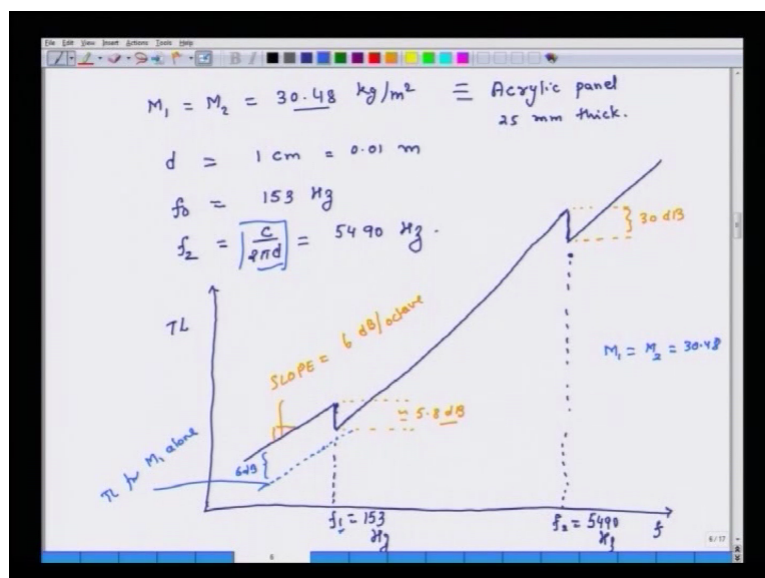 File Edit View Insert Actions Tools Help
M₁ = M₂ = 30.48 kg/m² ≡ Acrylic panel
25 mm thick.
d = 1 cm = 0.01 m
f₀ = 153 Hz
f₂ = c/2πd = 5490 Hz.
30 dB
TL
SLOPE = 6 dB/octave
M₁ = M₂ = 30.48
≈ 5.8 dB
TL for M₁ alone
6dB
f₁ = 153 Hz
f₂ = 5490 Hz
f
6/17
6